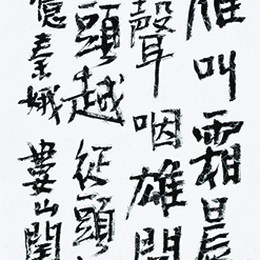 雁叫霜晨
聲咽雄關
頭越從頭
憶秦娥 婁山關